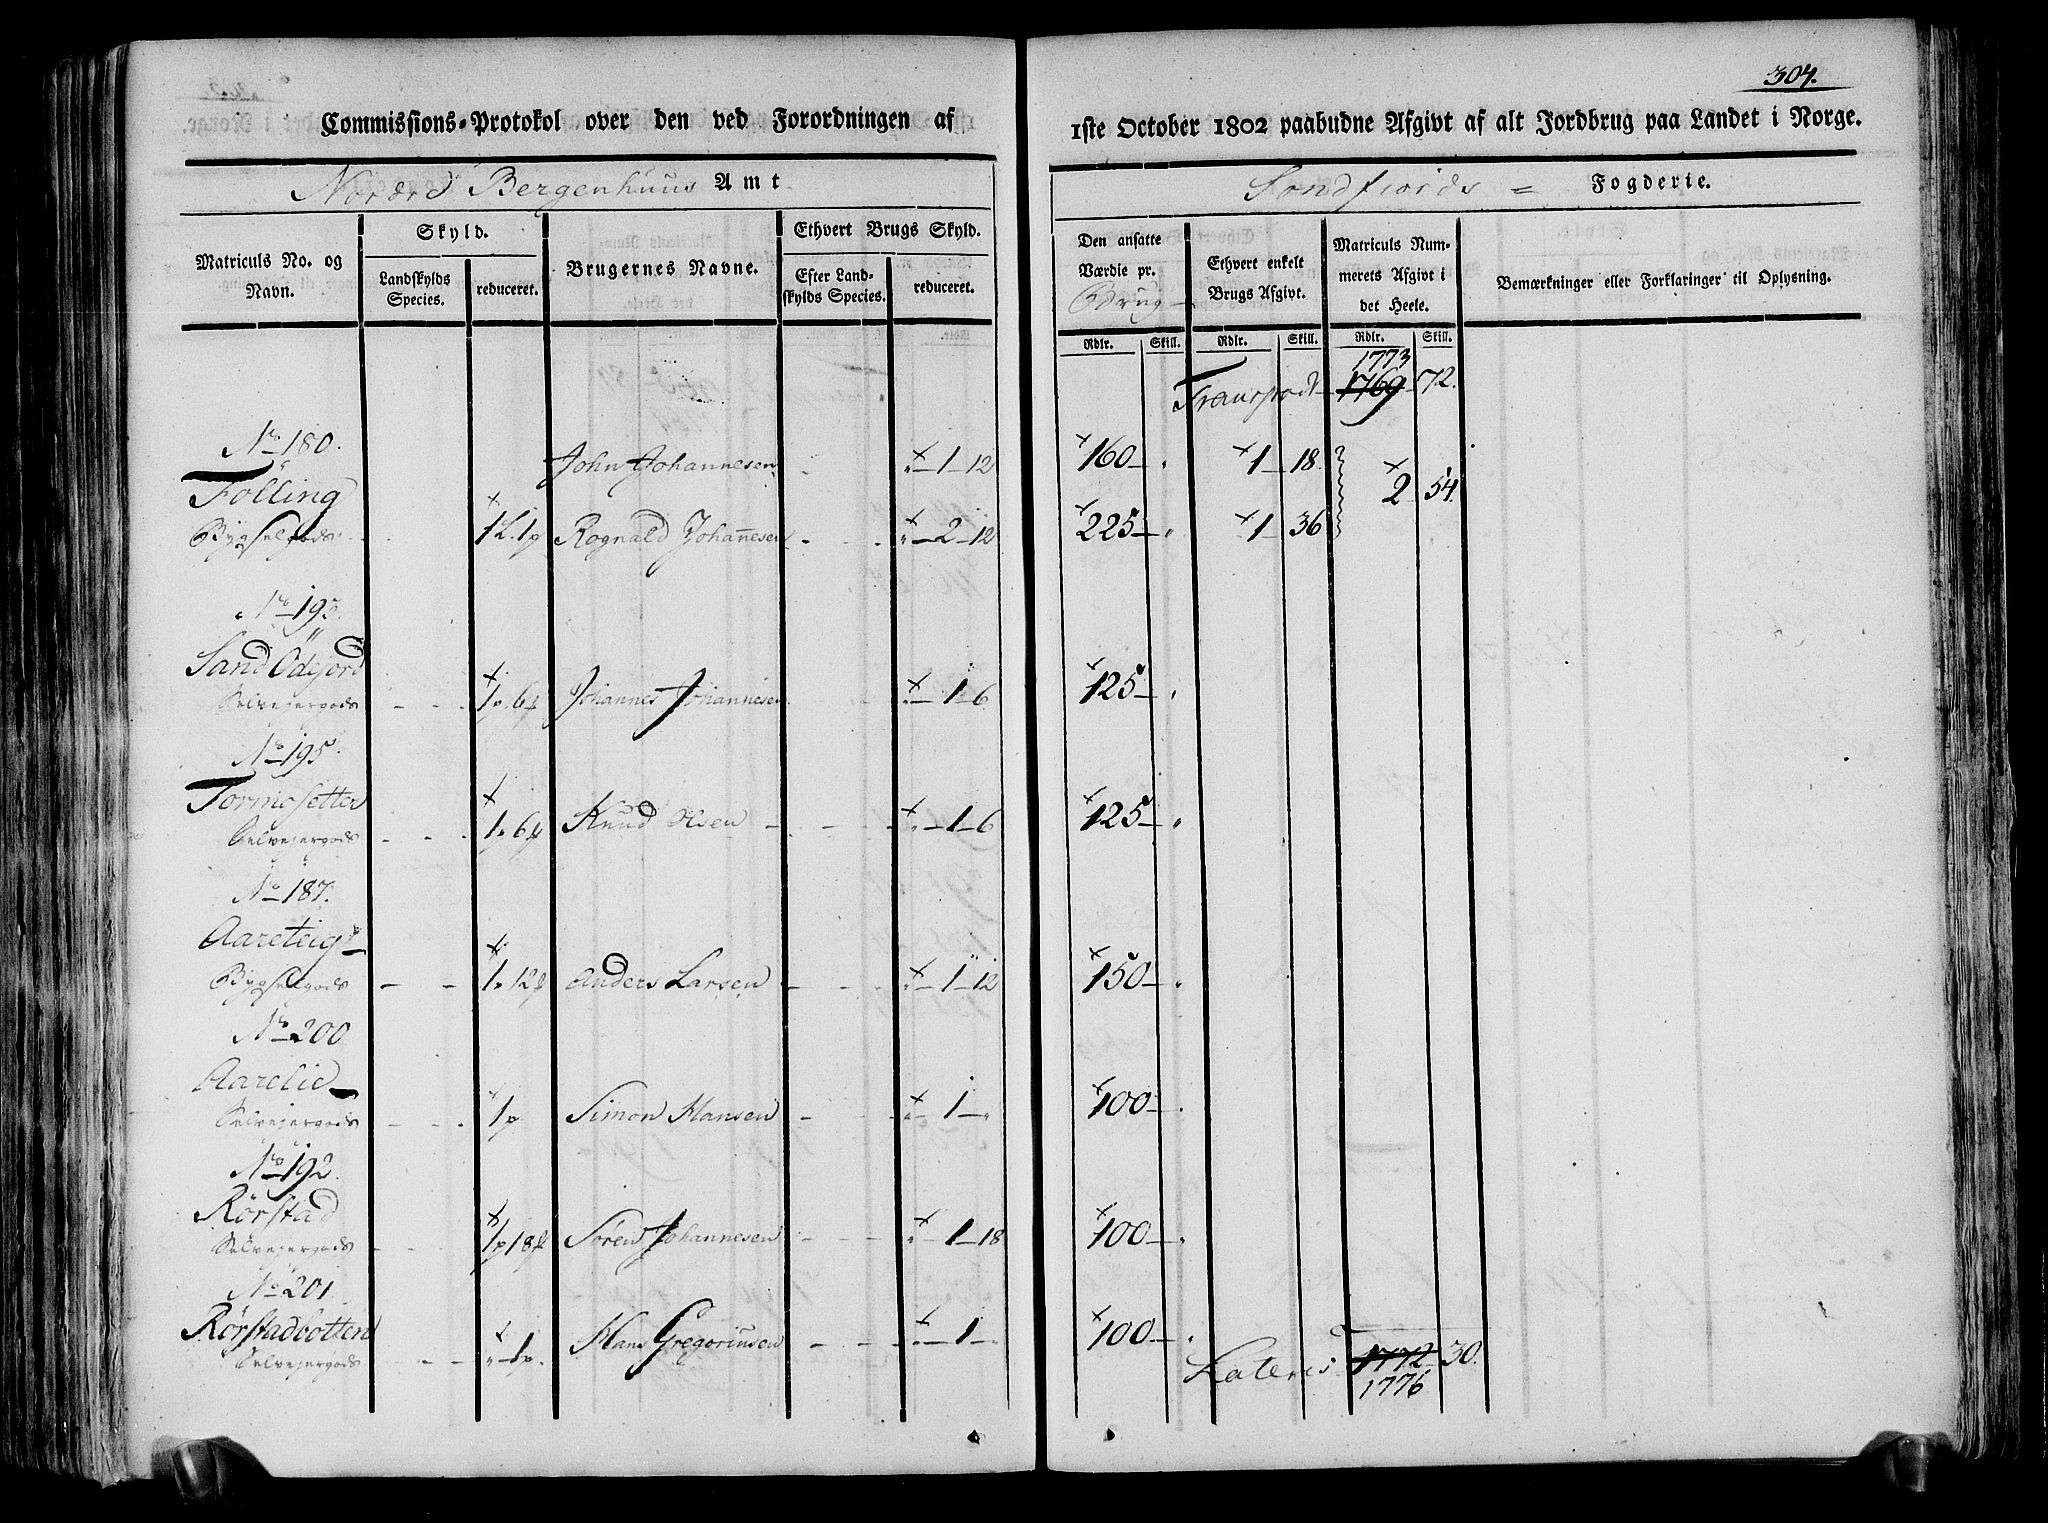 304.
Commissions-Protokol over den ved Forordningen af 1ste October 1802 paabudne Afgivt af alt Jordbrug paa Landet i Norge.
Nordre Bergenhuus Amt
Søndfiords = Fogderie.
Matriculs No. og Navn.
Skyld.
Landskylds Species.
reduceret.
Brugernes Navne.
Ethvert Brugs Skyld.
Efter Landskylds Species.
reduceret.
Den ansatte Værdie pr. Brug
Ethvert enkelt Brugs Afgivt.
Matriculs Nummerets Afgivt i det Heele.
Bemærkninger eller Forklaringer til Oplysning.
Rdlr. Skill. Rdlr. Skill. Rdlr. Skill.
1773
Transport 1769 72.
No 180.
Fölling John Johannesen 1 12 160 1 18 2 54
Bygselgods 1L. 1p Rognald Johannesen 2 12 225 1 36
No 193.
Sand Ödejord
Selvejergods 1p. 6f Johannes Johannesen 1 6 125
No 195.
Tormosetter
Selvejergods 1p 6f Knud Olsen 1 6 125
No 187.
Aareteig
Bygselgods 1p 12f Anders Larsen 1 12 150
No 200
Aarelie
Selvejergods 1p Simon Hansen 1 100
No 192.
Rørstad
Selvejergods 1p 18f Søren Johannesen 1 18 100
No 201
Rørstadbotten
Selvejergods 1p. Hans Gregoriusen 1 100
Lateris 1772 30.
1776